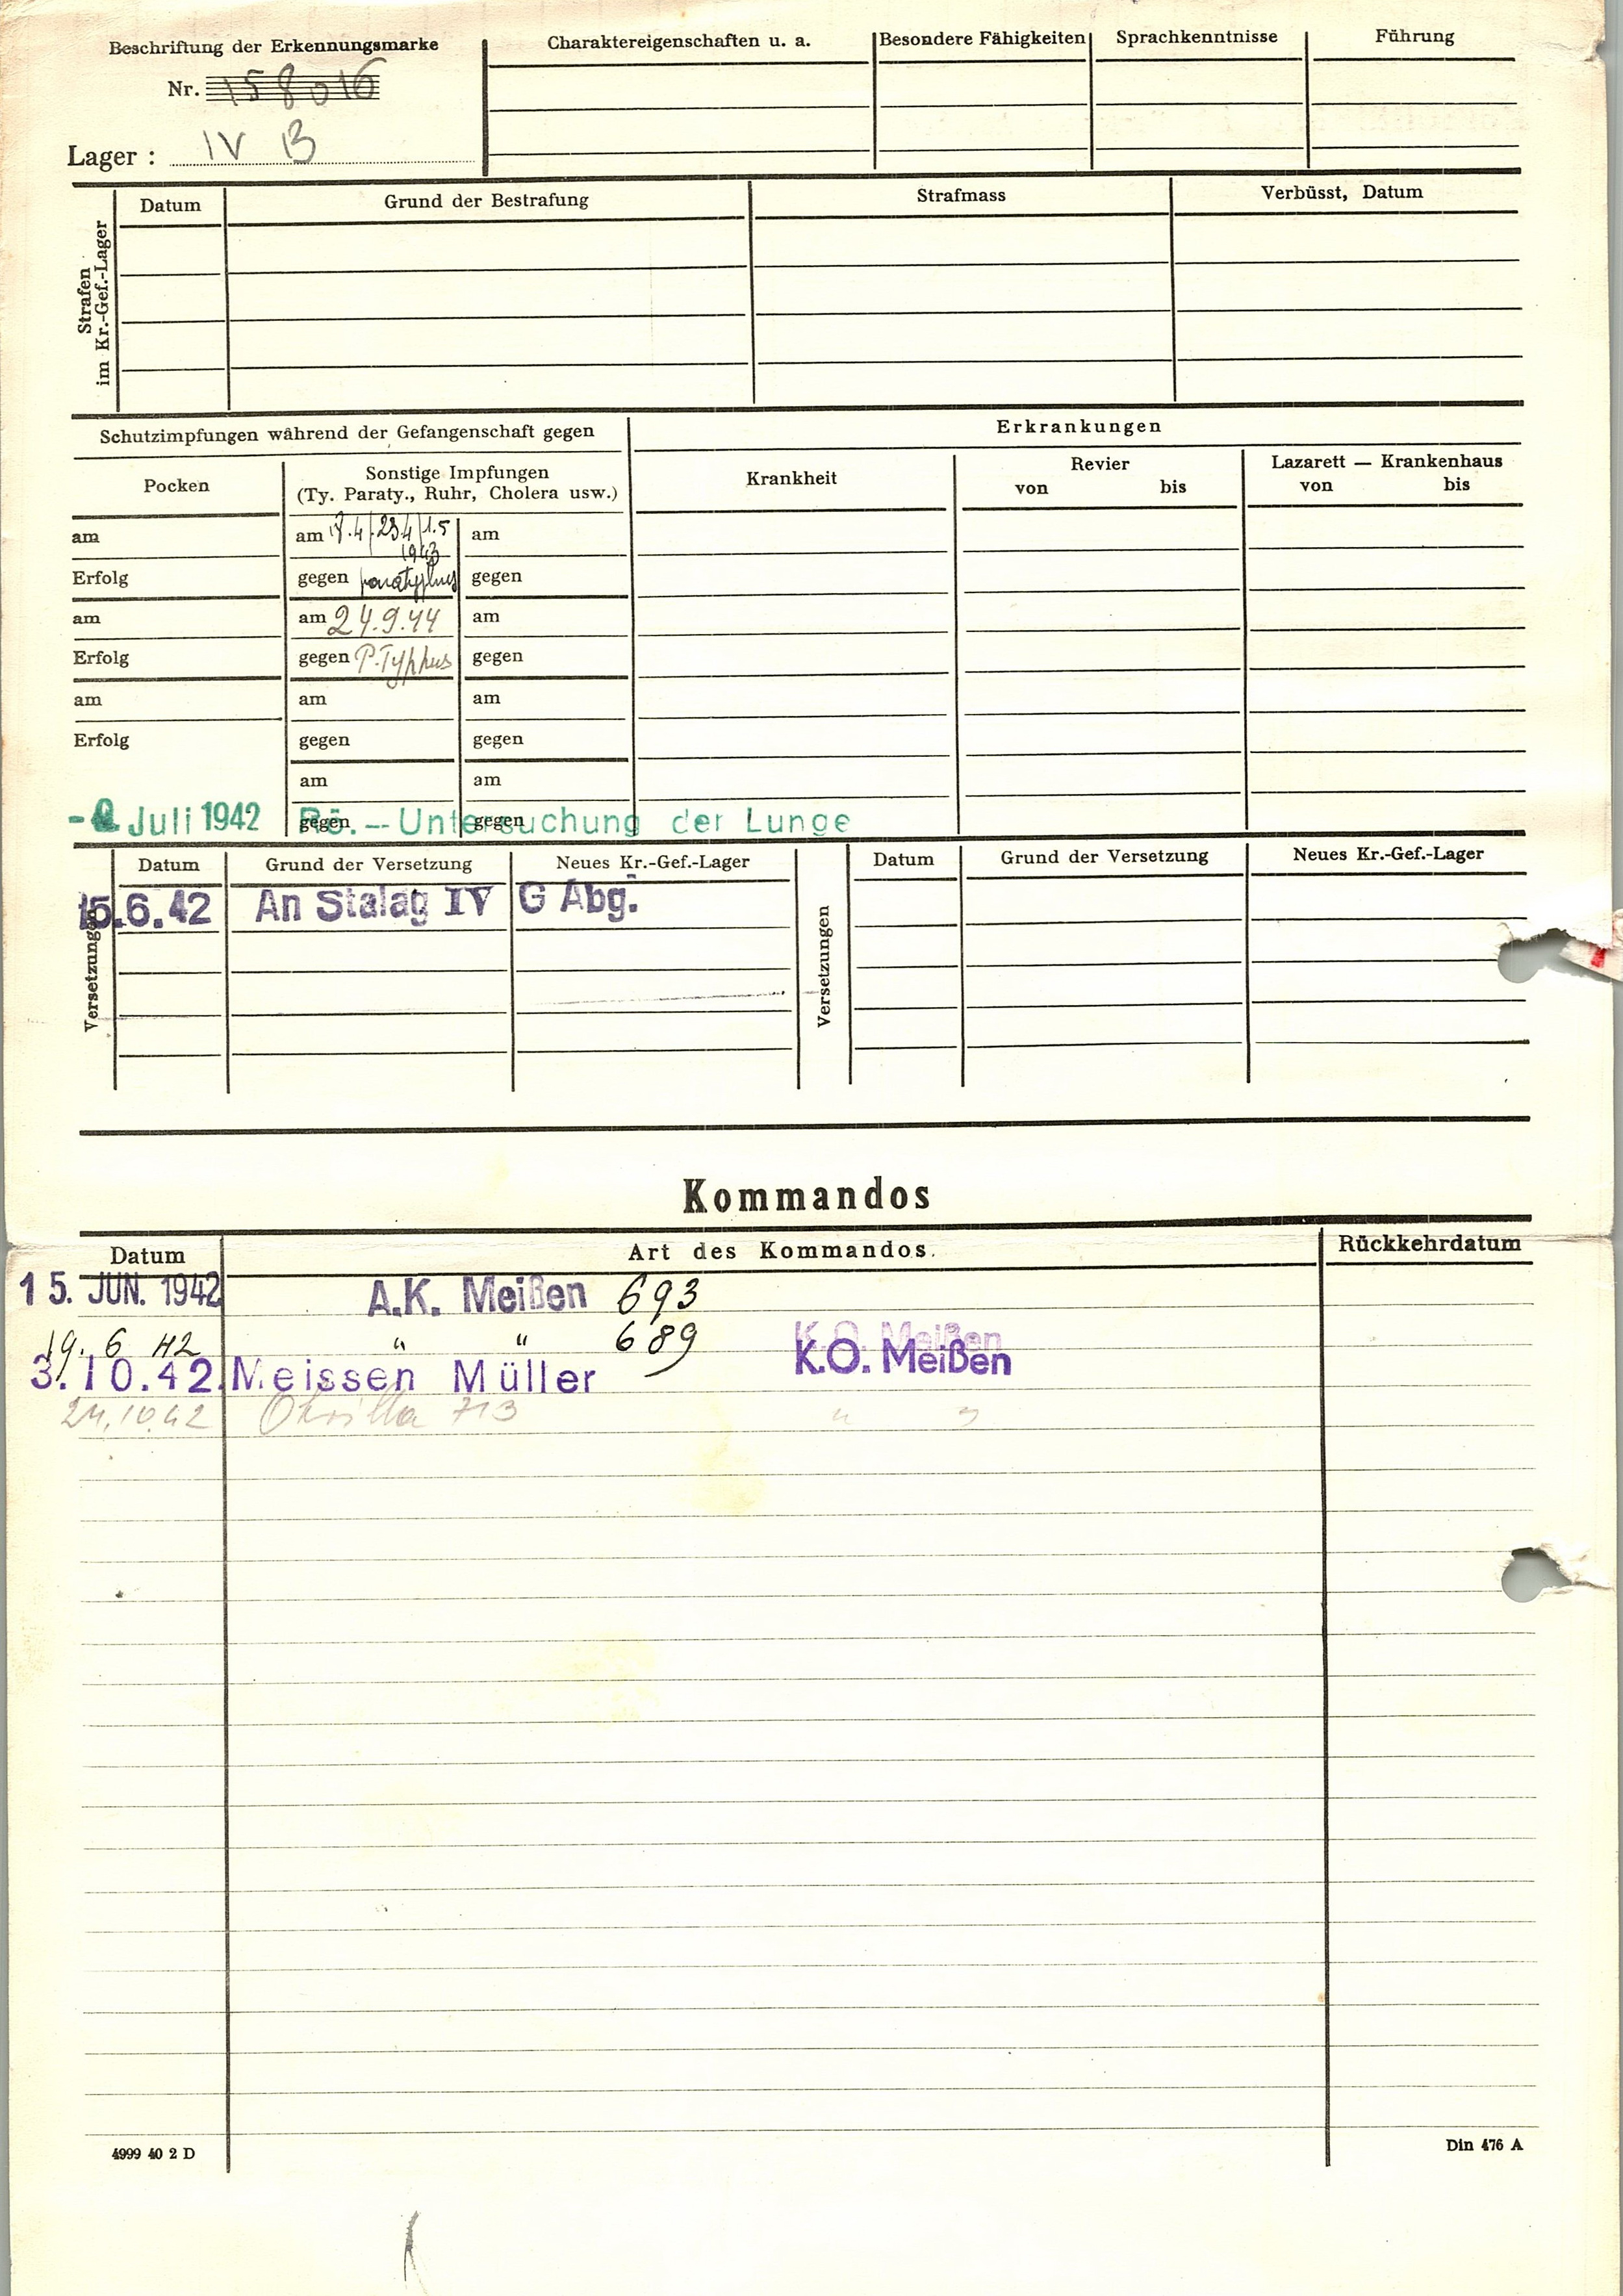 Beschriftung der Erkennungsmarke
Nr. 158016
Lager : IV B
Charaktereigenschaften u. a.
Besondere Fähigkeiten
Sprachkenntnisse
Führung
Strafen
im Kr.-Gef.-Lager
Datum
Grund der Bestrafung
Strafmass
Verbüsst, Datum
Schutzimpfungen während der Gefangenschaft gegen
Erkrankungen
Pocken
Sonstige Impfungen
(Ty. Paraty., Ruhr, Cholera usw.)
Krankheit
Revier
von bis
Lazarett — Krankenhaus
von bis
am
am 23.4 1.5
1943
am
Erfolg
gegen paratyphus
gegen
am
am 24.9.44
am
Erfolg
gegen P.Typhus
gegen
am
am
am
Erfolg
gegen
gegen
am
am
gegen
gegen
Juli 1942 Rö.-Untersuchung der Lunge
Versetzungen
Datum
Grund der Versetzung
Neues Kr.-Gef.-Lager
Versetzungen
Datum
Grund der Versetzung
Neues Kr.-Gef.-Lager
15.6.42 An Stalag IV G Abg.
Kommandos
Datum
Art des Kommandos.
Rückkehrdatum
15. JUN. 1942 A.K. Meißen 693
19. 6 42 " " 689 K.O. Meißen
K.O. Meißen
3.10.42. Meissen Müller
24.10.42 Okrilla 713 " "
4999 40 2 D
Din 476 A